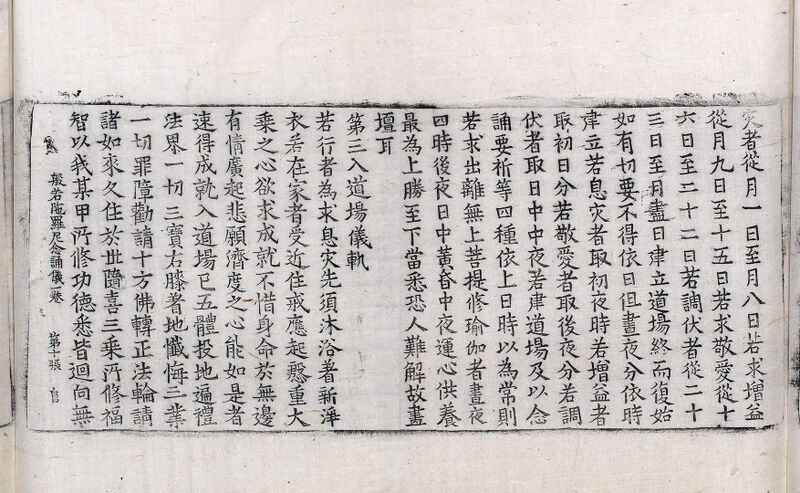 灾者從月一日至月八日若求增益
從月九日至十五日若求敬愛從十
六日至二十二日若調伏者從二十
三日至月盡日建立道場終而復始
如有切要不得依日但晝夜分依時
建立若息灾者取初夜時若增益者
取初日分若敬愛者取後夜分若調
伏者取日中中夜若建道場及以念
誦要祈等四種依上日時以為常則
若求出離無上菩提修瑜伽者晝夜
四時後夜日中黃昏中夜運心供養
最為上勝至下當悉恐人難解故畫
壇耳
第三入道場儀軌
若行者為求息灾先須沐浴著新淨
衣若在家者受近住戒應起慇重大
乘之心欲求成就不惜身命於無邊
有情廣起悲願濟度之心能如是者
速得成就入道場已五體投地遍禮
法界一切三寶右膝著地懺悔三業
一切罪障勸請十方佛轉正法輪請
諸如來久住於世隨喜三乘所修福
智以我某甲所修功德悉皆迴向無
般若陁羅尼念誦儀卷 第十張